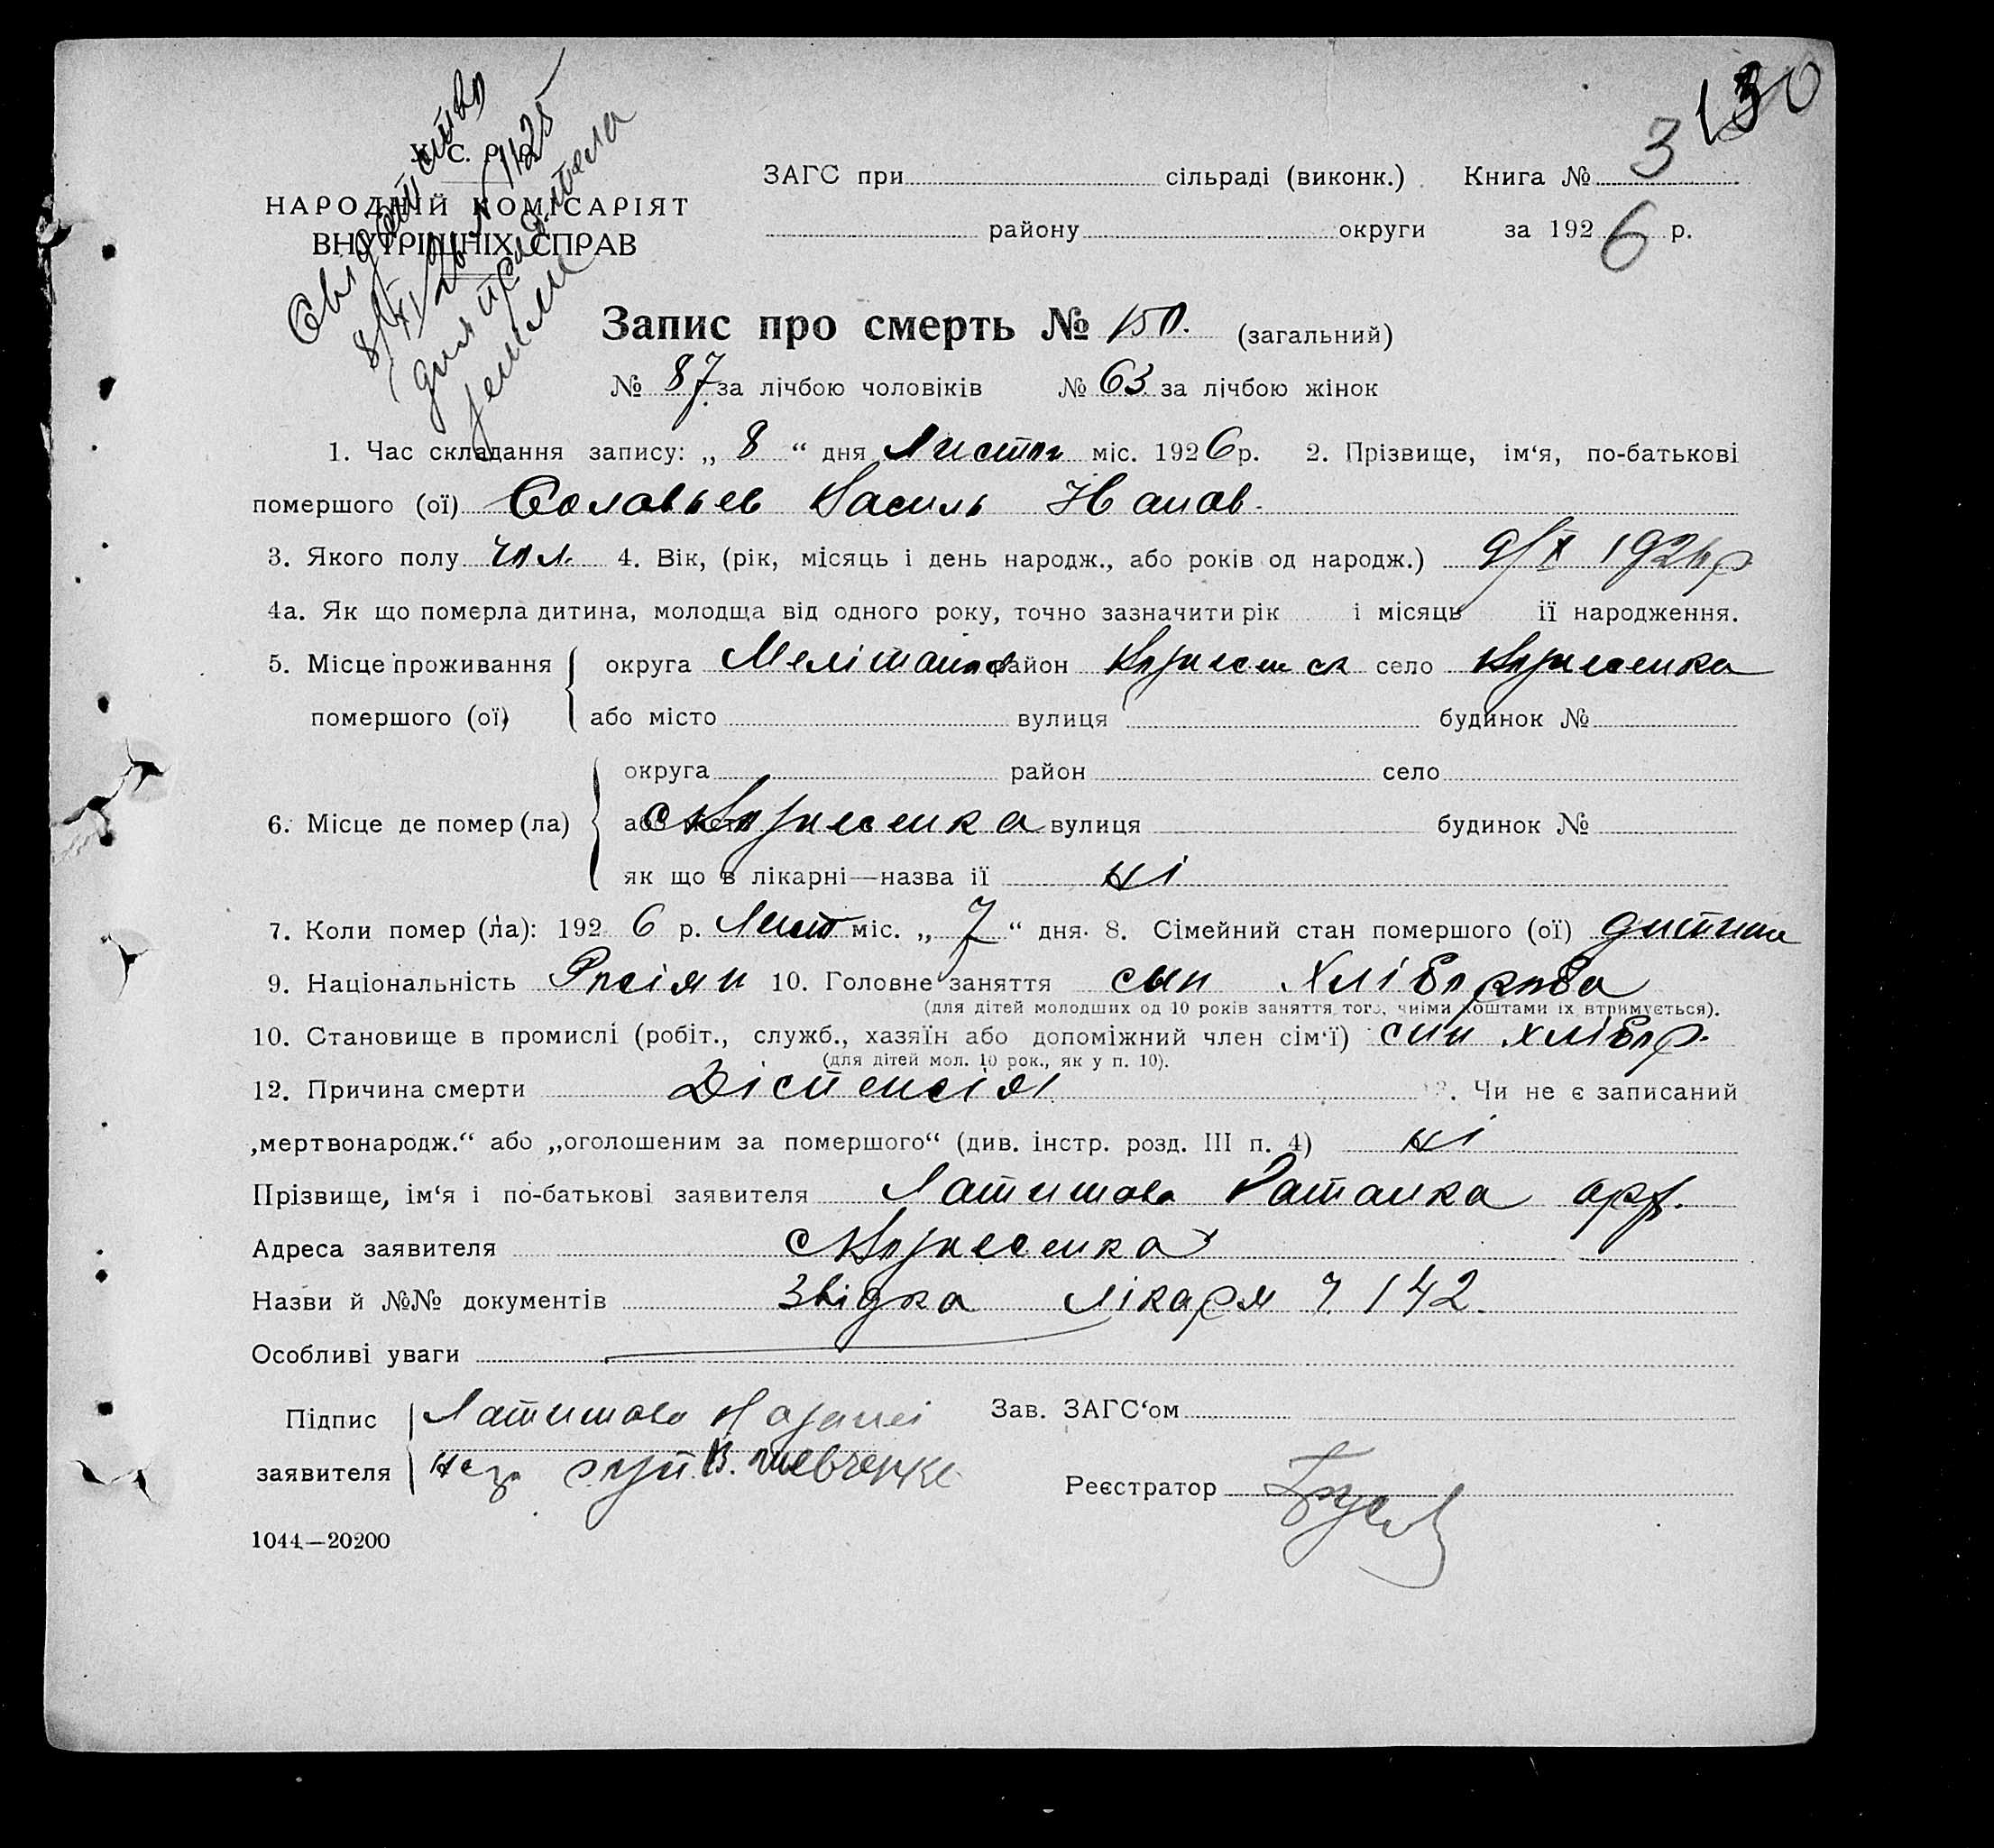 130
Свідоцтво
8/XI/26 № 1125
У. С. Р. Р.
НАРОДНІЙ КОМІСАРІЯТ
ВНУТРІШНІХ СПРАВ
ЗАГС при сільраді (виконк.) Книга № 3
району округи за 1926 р.
Запис про смерть № 150. (загальний)
№ 87 за лічбою чоловіків № 63 за лічбою жінок
1. Час складання запису: „ 8 “ дня Листоп міс. 1926 р. 2. Прізвище, ім‘я, по-батькові
помершого (ої) Соловьев Василь Иванов.
3. Якого полу чол. 4. Вік, (рік, місяць і день народж., або років од народж.) 9/X 1926 р
4а. Як що померла дитина, молодща від одного року, точно зазначити рік і місяць її народження.
5. Місце проживання округа Мелітопол район Вознесенск село Вознесенка
помершого (ої) або місто вулиця будинок №
округа район село
6. Місце де помер (ла) або місто с Вознесенка вулиця будинок №
як що в лікарні—назва її ні
7. Коли помер (ла): 1926 р. Лист міс. „ 7 “ дня. 8. Сімейний стан помершого (ої) дитина
9. Національність Росіян 10. Головне заняття сын Хлібороба
(для дітей молодших од 10 років заняття того, чиїми коштами їх втримується).
10. Становище в промислі (робіт., служб., хазяїн або допоміжний член сім‘ї) син хлібор.
(для дітей мол. 10 рок., як у п. 10).
12. Причина смерти Діспепсія 13. Чи не є записаний
„мертвонародж.“ або „оголошеним за помершого“ (див. інстр. розд. III п. 4) ні
Прізвище, ім‘я і по-батькові заявителя Латишова
Адреса заявителя с Вознесенка
Назви й №№ документів Звідка лікаря 142.
Особливі уваги
Підпис Латишова Зав. ЗАГС‘ом
заявителя В. Шевченко
Реєстратор
1044—20200